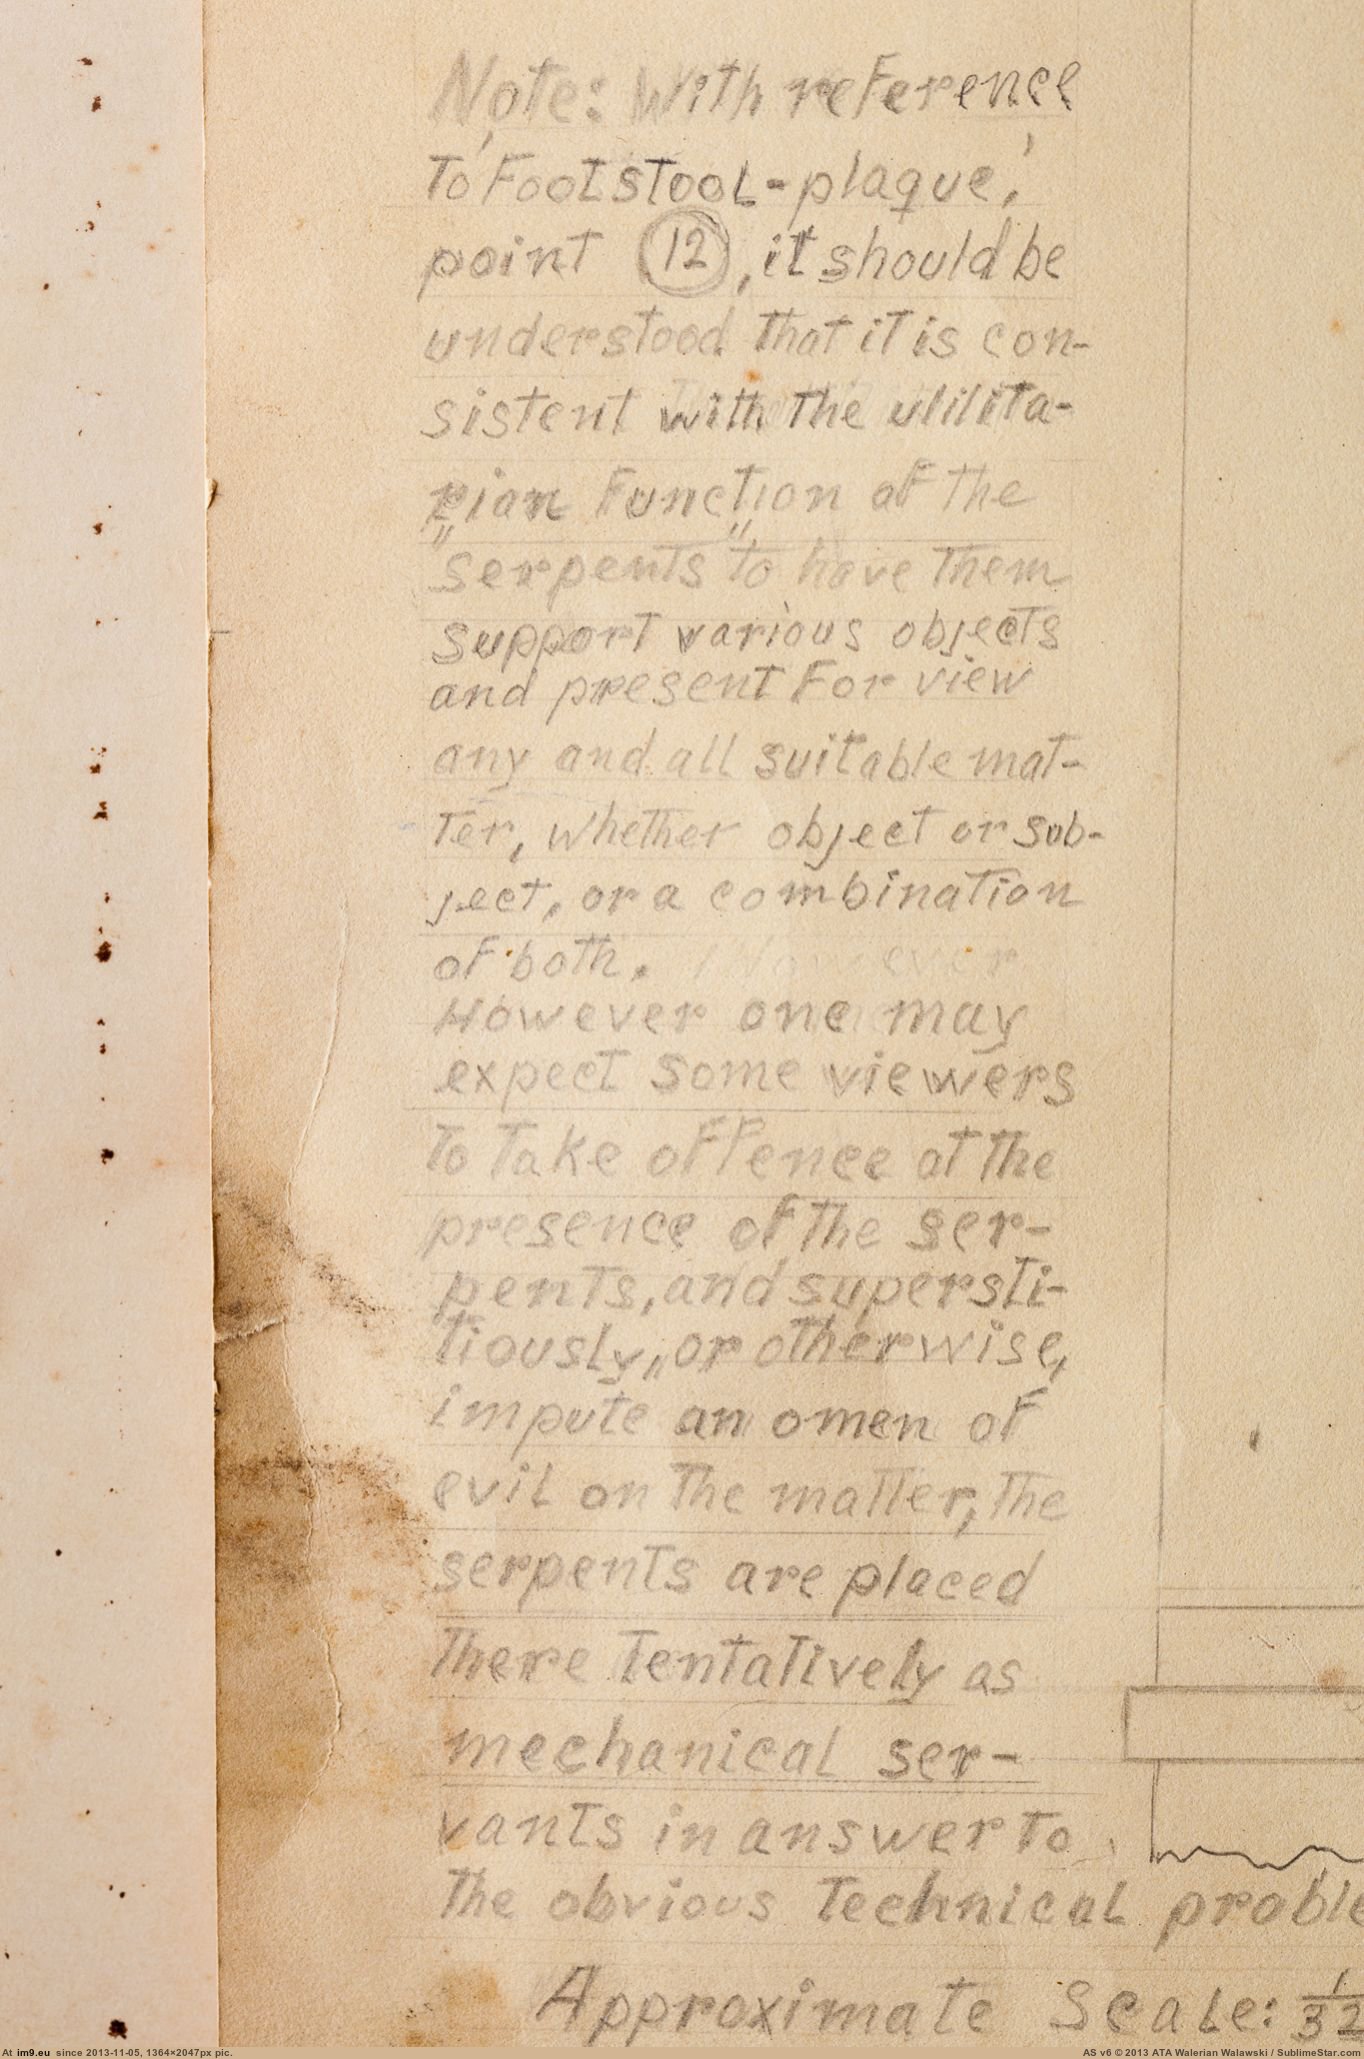 Note: With reference
to 'Footstool-plaque,'
point (12), it should be
understood that it is con-
sistent with the utilita-
rian function of the
"serpents" to have them
support various objects
and present for view
any and all suitable mat-
ter, whether object or sub-
ject, or a combination
of both. However
However one may
expect some viewers
to take offence at the
presence of the ser-
pents, and supersti-
tiously, or otherwise,
impute an omen of
evil on the matter, the
serpents are placed
there tentatively as
mechanical ser-
vants in answer to
the obvious technical proble
Approximate Scale: 1/32
At im9.eu since 2013-11-05, 1364×2047px pic.
AS v6 © 2013 ATA Walerian Walawski / SublimeStar.com